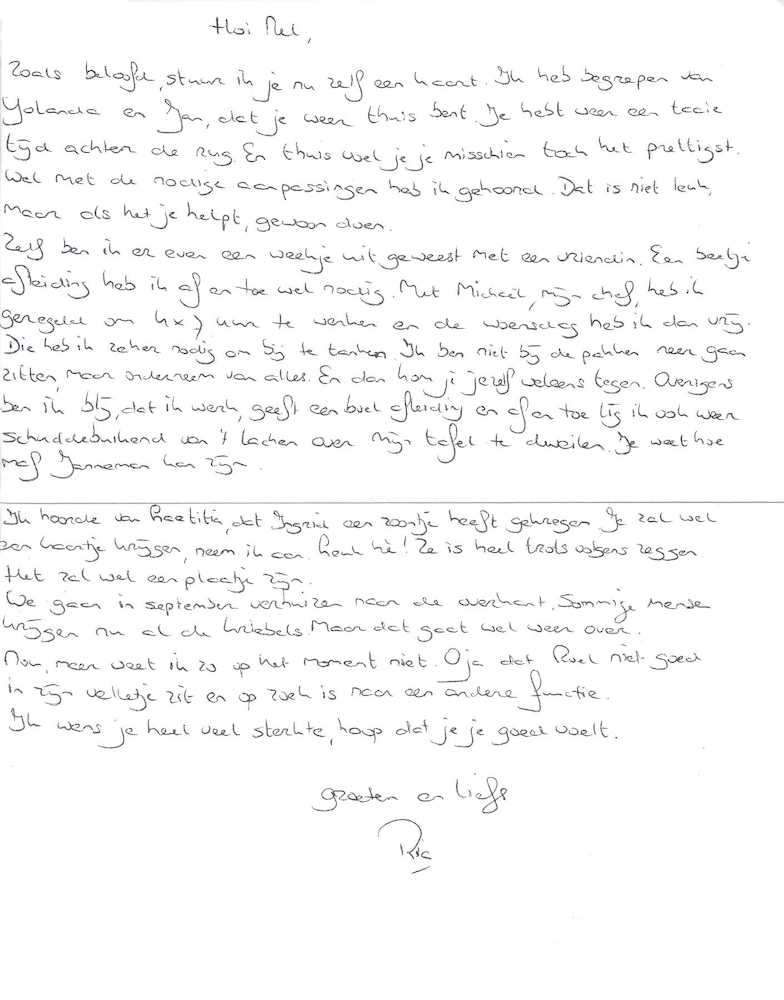 Hoi Nel,
Zoals beloofd, stuur ik je nu zelf een kaart. Ik heb begrepen van
Yolanda en Jan, dat je weer thuis bent. Je hebt weer een taaie
tijd achter de rug. En thuis voel je je misschien toch het prettigst.
Wel met de nodige aanpassingen heb ik gehoord. Dat is niet leuk,
maar als het je helpt, gewoon doen.
Zelf ben ik er even een weekje uit geweest met een vriendin. Een beetje
afleiding heb ik af en toe wel nodig. Met Michaël, mijn chef, heb ik
geregeld om 4x7 uur te werken en de woensdag heb ik dan vrij.
Die heb ik zeker nodig om bij te tanken. Ik ben niet bij de pakken neer gaan
zitten, maar onderneem van alles. En dan kom je jezelf weleens tegen. Overigens
ben ik blij, dat ik werk, geeft een boel afleiding en af en toe lig ik ook weer
schuddebuikend van 't lachen over mijn tafel te dweilen. Je weet hoe
maf Janneman kan zijn.
Ik hoorde van Laetitia, dat Ingrid een zoontje heeft gekregen. Je zal wel
een kaartje krijgen, neem ik aan. Leuk hè! Ze is heel trots volgens zeggen.
Het zal wel een plaatje zijn.
We gaan in september verhuizen naar de overkant. Sommige mensen
krijgen nu al de kriebels. Maar dat gaat wel weer over.
Nou, meer weet ik zo op het moment niet. Oja dat Roel niet goed
in zijn velletje zit en op zoek is naar een andere functie.
Ik wens je heel veel sterkte, hoop dat je je goed voelt.
groeten en liefs
Ria